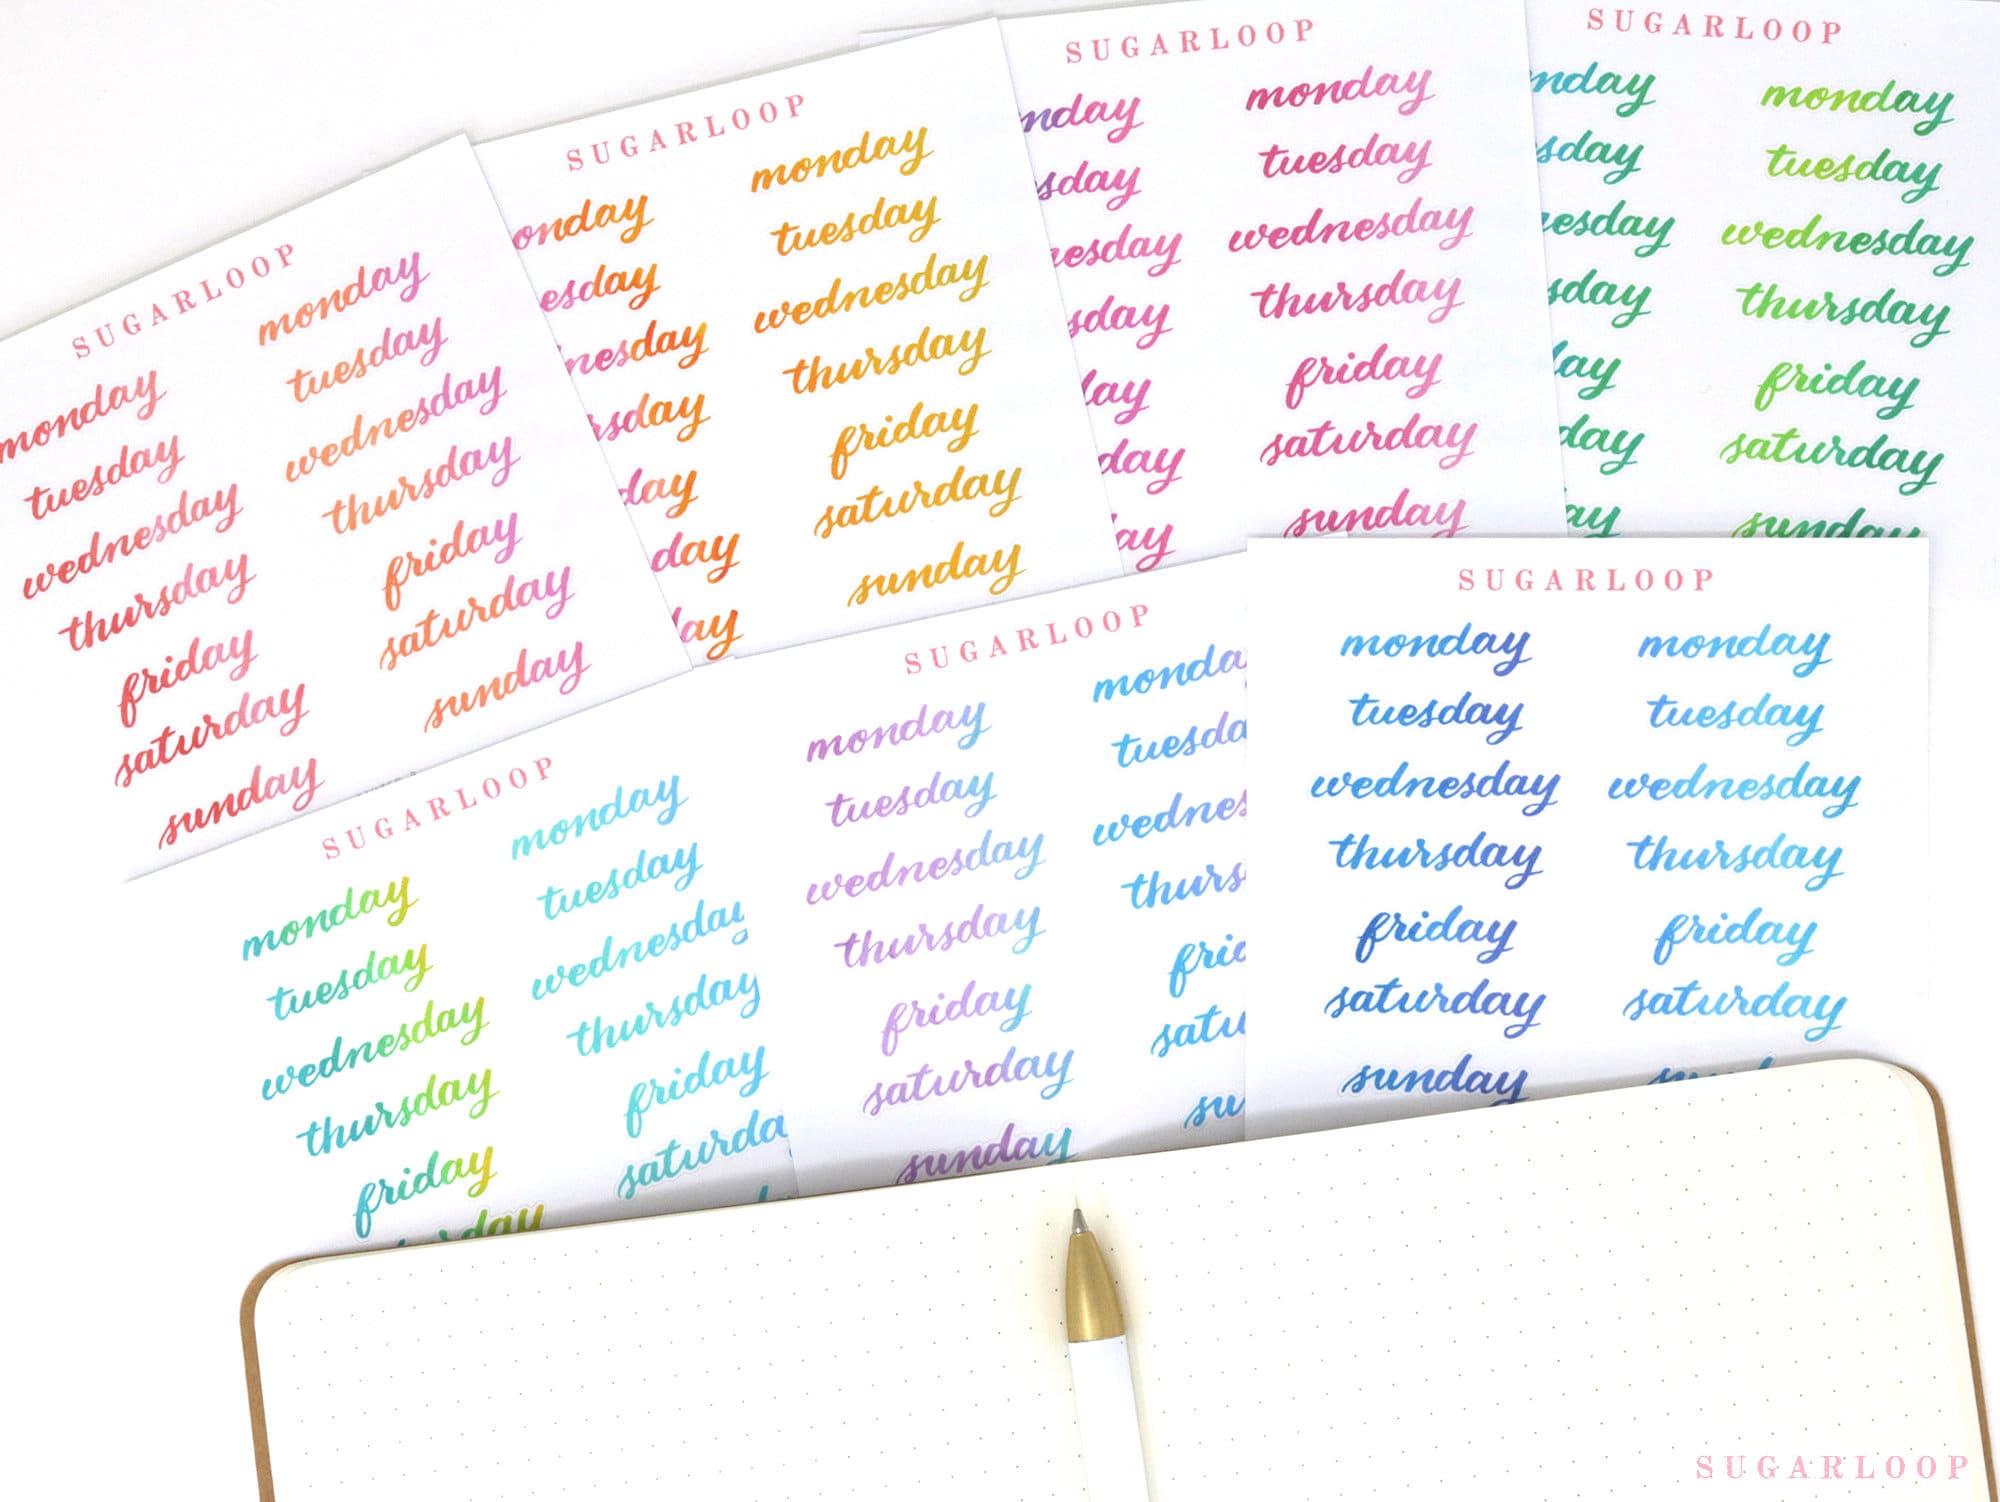 SUGARLOOP
monday
tuesday
wednesday
thursday
friday
saturday
sunday
monday
tuesday
wednesday
thursday
friday
saturday
sunday
SUGARLOOP
onday
esday
nesday
rsday
day
day
day
monday
tuesday
wednesday
thursday
friday
saturday
sunday
SUGARLOOP
nday
sday
nesday
sday
day
day
ay
monday
tuesday
wednesday
thursday
friday
saturday
sunday
SUGARLOOP
nday
sday
nesday
sday
day
day
ay
monday
tuesday
wednesday
thursday
friday
saturday
sunday
SUGARLOOP
monday
tuesday
wednesday
thursday
friday
monday
tuesday
wednesday
thursday
friday
saturda
SUGARLOOP
monday
tuesday
wednesday
thursday
friday
saturday
sunday
monda
tuesda
wednes
thurs
frid
satu
su
SUGARLOOP
monday
tuesday
wednesday
thursday
friday
saturday
sunday
monday
tuesday
wednesday
thursday
friday
saturday
SUGARLOOP